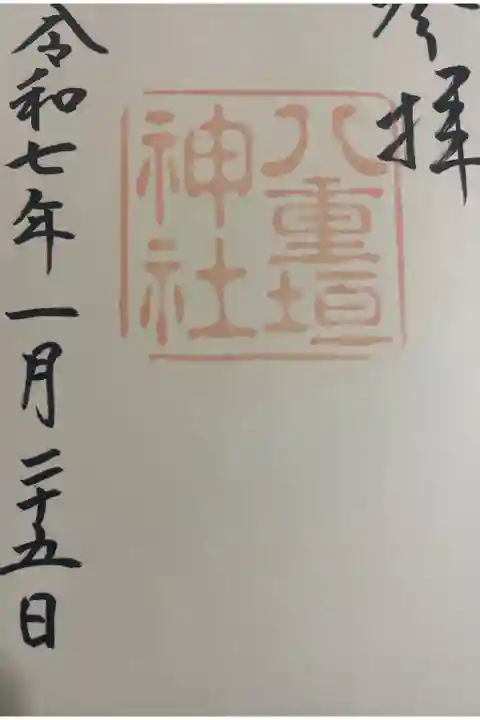 参拝
八重垣
神社
令和七年一月二十五日